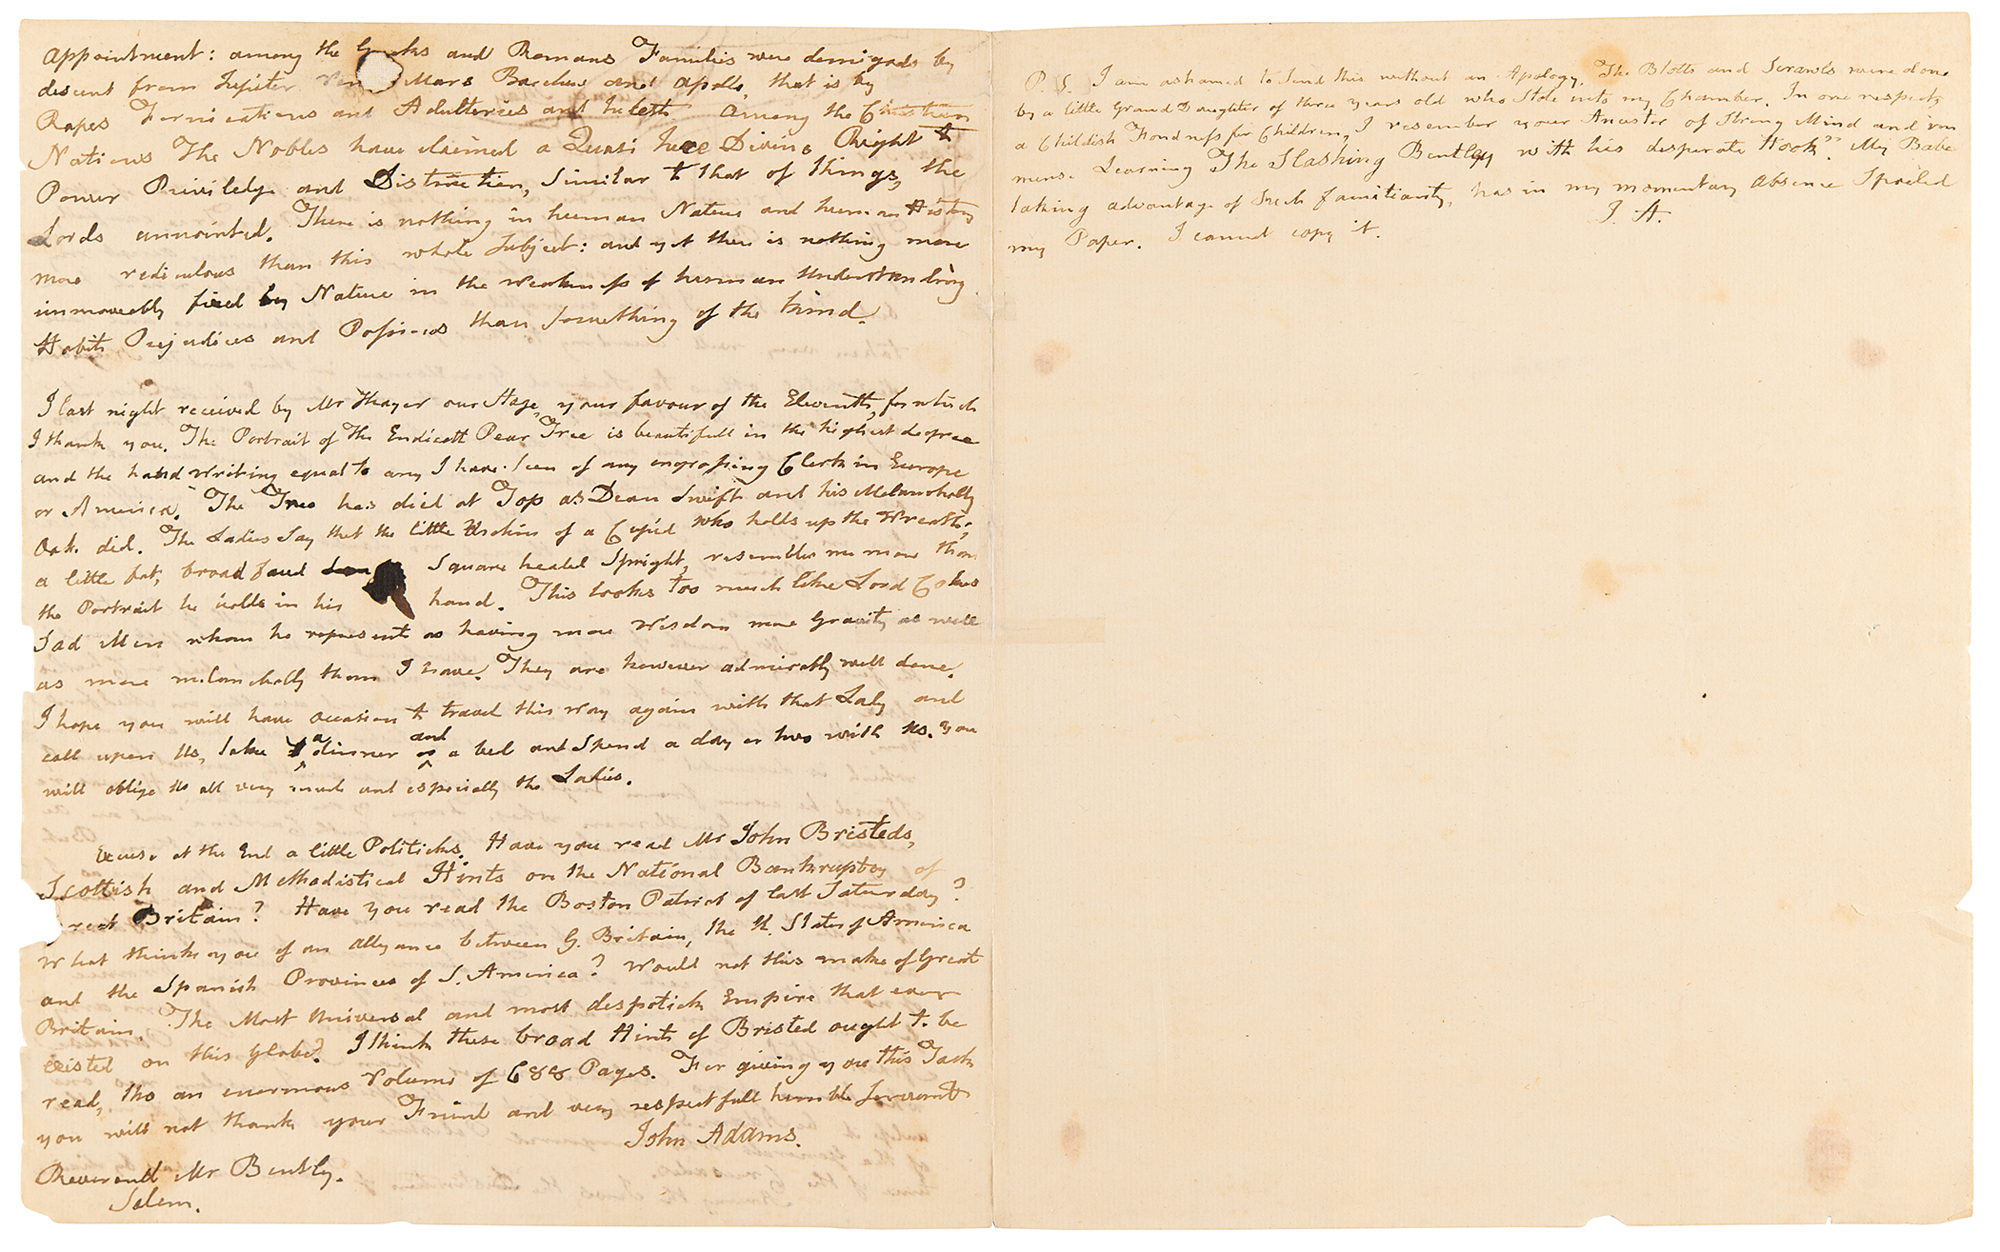 Appointment: among the Greeks and Romans Families were demigods by
descent from Jupiter Mars Bacchus and Apollo, that is by
Rapes Fornications and Adulteries and Incests. Among the Christian
Nations The Nobles have claimed a Quasi Jure Divino Right to
Power Priviledge and Distinction, Similar to that of Kings, the
Lords annointed. There is nothing in human Nature and human History
more rediculous than this whole Subject: and yet there is nothing more
immoveably fixed by Nature in the Weakness of human Understanding
Habits Prejudices and Passions than something of the kind.
I last night received by Mr Thayer our Stage, your favour of the Eleventh, for which
I thank you. The Portrait of The Endicott Pear Tree is beautifull in the highest degree
and the hand Writing equal to any I have Seen of any engrossing Clerk in Europe
or America. The Tree has died at Top as Dean Swift and his Melancholly
Oak did. The Ladies Say that the little Urchin of a Cupid who holds up the Wreath,
a little fat, broad faced Square headed Spright, resembles me more than
the Portrait he holds in his hand. This looks too much like Lord Cokes
Sad Men whom he represents as having more Wisdom more Gravity as well
as more melancholly than I have. They are however admirably well done.
I hope you will have occasion to travel this Way again with that Lady and
call upon Us, take a dinner and a bed and Spend a day or two with Us. You
will oblige Us all very much and especially the Ladies.
Excuse at the End a little Politicks. Have you read Mr John Bristeds,
Scottish and Methodistical Hints on the National Bankruptcy of
Great Britain? Have you read the Boston Patriot of last Saturday?
What think you of an allyance between G. Britain, the U. States of America
and the Spanish Provinces of S. America? Would not this make of Great
Britain, The Most Universal and most despotick Empire that ever
existed on this Globe? I think these broad Hints of Bristed ought to be
read, tho an enormous Volume of 688 Pages. For giving you this Task
you will not thank your Friend and very respectfull humble Servant
John Adams.
Reverend Mr Bently.
Salem.
P.S. I am ashamed to Send this without an Apology. The Blotts and Scrawls were done
by a little Grand Daughter of three years old who Stole into my Chamber. In one respect,
a Childish Fondness for Children, I resemble your Ancestor of Strong Mind and im
mense Learning "The Slashing Bentley with his desperate Hook". My Babe
taking advantage of Such familiarity, has in my momentary absence Spoiled
my Paper. I cannot copy it. J. A.